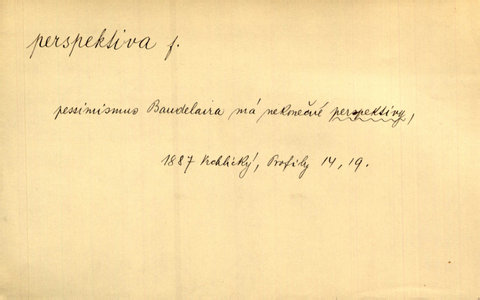 perspektiva f.
pessimismus Baudelaira má nekonečné perspektivy,
1887 Vrchlický, Profily 14, 19.